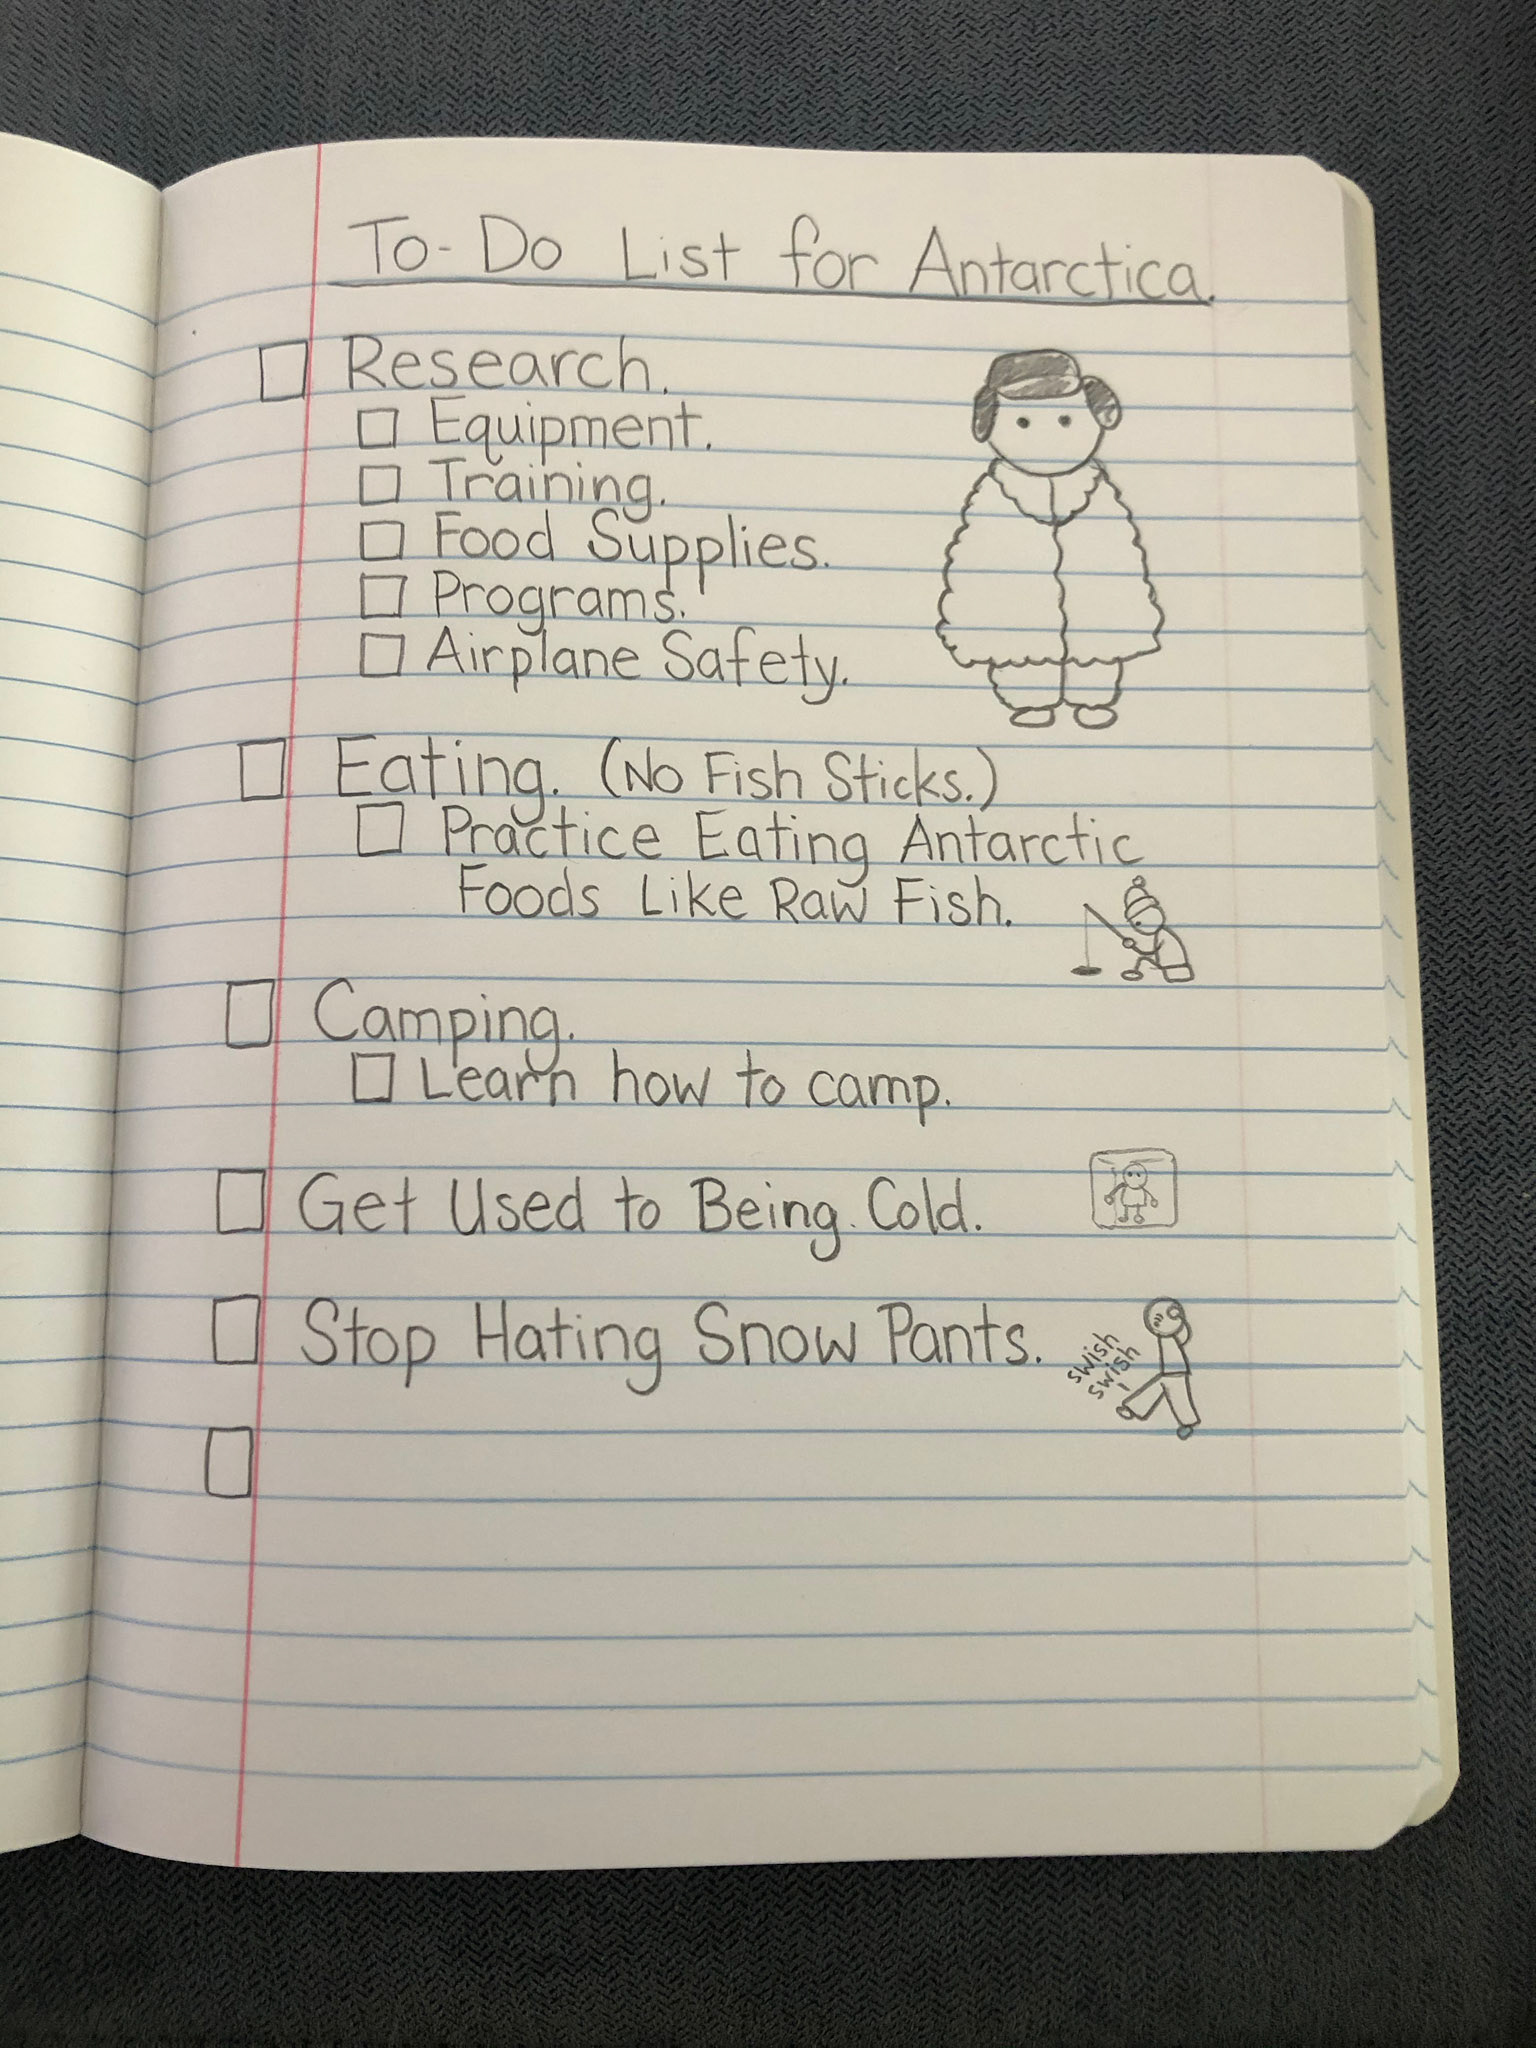 To-Do List for Antarctica.
Research.
Equipment.
Training.
Food Supplies.
Programs.
Airplane Safety.
Eating. (No Fish Sticks.)
Practice Eating Antarctic
Foods Like Raw Fish.
Camping.
Learn how to camp.
Get Used to Being Cold.
Stop Hating Snow Pants.
swish
swish